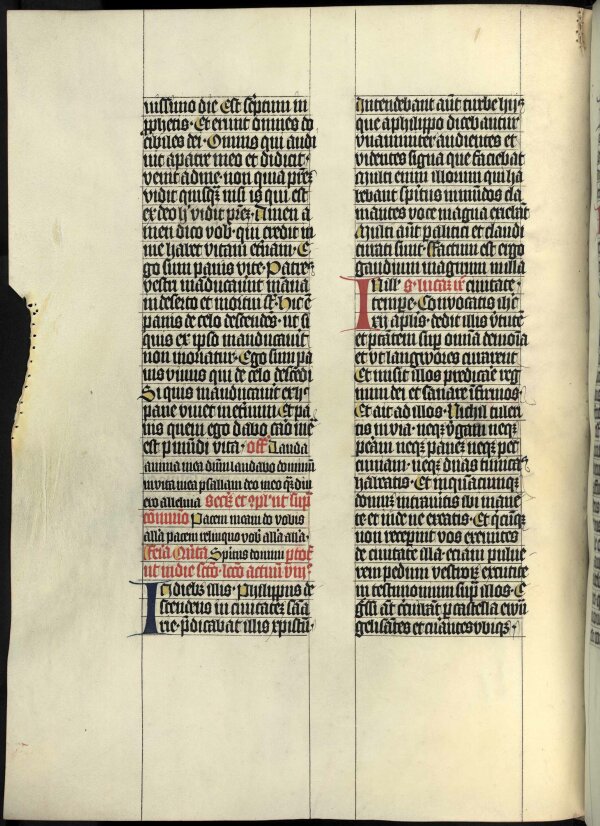 uissimo die Est septum in
prophetis · Et erunt omnes do
cibiles dei · Omnis qui audi
uit a patre meo et didicit ·
venit ad me · non quia prez
vidit quisq̄ nisi is qui est
ex deo h̄ vidit prez · Amen a
men dico vob̄ · qui credit in
me habet vitam etnam · E
go sum panis vite · Patres
vestri maducauerūt māna
in deserto et mortui st̄ · Hic ē
panis de celo descendēs · ut si
quis ex ipso maducauerit
non moriatur · Ego sum pa
nis viuus qui de celo descēdi
Si quis maducauerit ex h̄
pane viuet in etnum · Et pa
nis quem ego dabo caro mē
est p mūdi vita · off̄ Lauda
anima mea dūm laudabo dominū
in vita mea psallam deo meo q̄m diu
ero alleluia Secr̄ et 9pl̄ ut supͣ
cōmunio Pacem meam do vobis
allā pacem relinquo vob̄ allā allā ·
Feīa Qnta Spiritus domini ptoͭ
ut in die sctō · lcō actuū viij
In dieb̄z illis · Philippus de
scendens in ciuitatez sam̄a
rie · p̄dicabat illis xpistū ·
Intendebant aūt turbe hijs
que a philippo dicebantur
vnanimiter audientes et
videntes signa que faciebat
Multi enim illorum qui ha
bebant spiritus inmūdos cla
mantes voce magna exiebāt
Multi aūt palitici et claudi
curati sunt · Factum est ergo
gaudium magnum in illa
In ill̄ · s̄ · lucaz iē ciuitate ·
tempe · Conuocatis ih̄c
xij aplis · dedit illis v̄tutē
et ptātem sup omīa demoīa
et vt langwores curarent
Et misit illos predicar̄e reg
num dei et sanare īfirmos ·
Et ait ad illos · Nichil tuleri
tis in via · neq̄ v̄gam neq̄
peram neq̄ panem neq̄ pec
cuniam · neq̄ duas tunicas
habeatis · Et in quamcunq̄
domum intraueritis ibi mane
te et inde ne exeatis · Et q̄cūq̄
non receperint vos exeuntes
de ciuitate illa · eciam pulue
rem pedum vestroꝝ excutite
in testimonium supͣ illos · E
gssi aūt circuibāt p castella ewā
gelisātes et curātes vbiq̄ ·